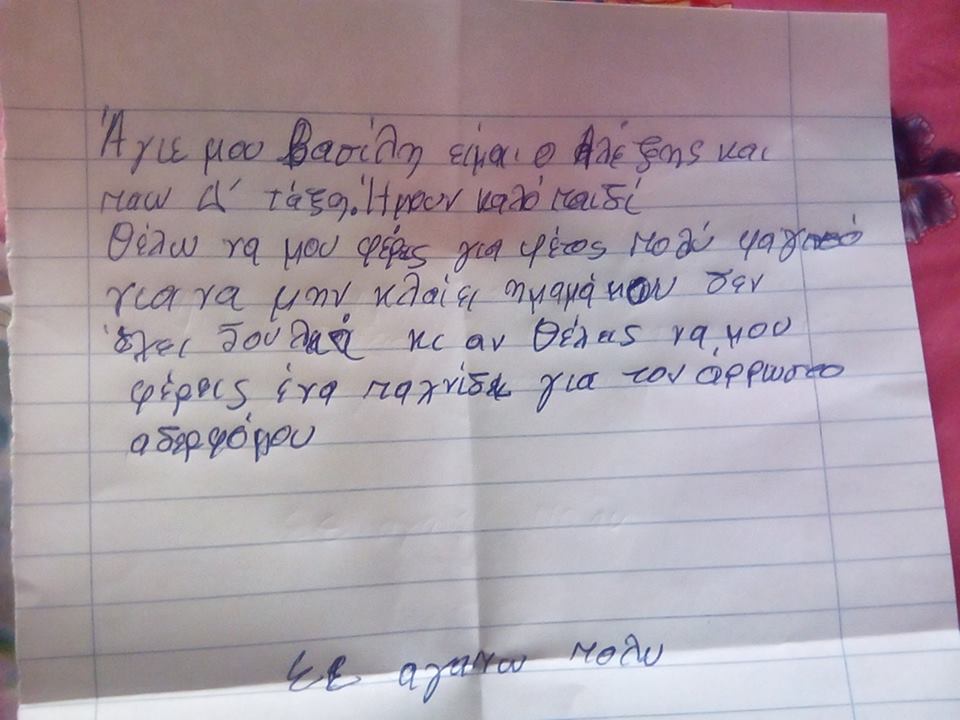 Άγιε μου Βασίλη είμαι ο Αλέξης και
παω Δ' τάξη. Ήμουν καλό παιδί
Θέλω να μου φέρεις για φέτος πολύ φαγητό
για να μην κλαίει ημαμά μου δεν
έχει δουλειά κι αν θέλεις να μου
φέρεις ένα παχνίδι για τον άρρωστο
αδερφόμου
ΣΕ αγαπω πολυ